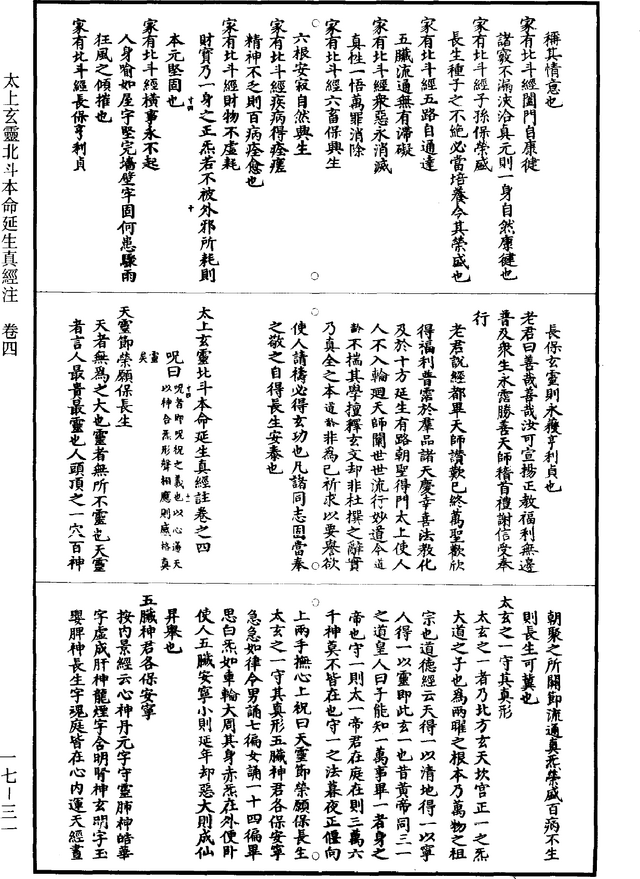 太上玄靈北斗本命延生真經注　卷四
稱其情意也
家有北斗經闔門自康健
諸竅不漏浹洽真元則一身自然康健也
家有北斗經子孫保榮盛
長生種子之不絶必當培養令其榮盛也
家有北斗經五路自通達
五臟流通無有滯礙
家有北斗經衆惡永消滅
真性一悟萬罪消除
家有北斗經六畜保興生
六根安寂自然興生
家有北斗經疾病得痊瘥
精神不乏則百病痊愈也
家有北斗經財物不虛耗
財寶乃一身之正炁若不被外邪所耗則
本元堅固也
家有北斗經橫事永不起
人身喻如屋宇堅完墻壁牢固何患驟雨
狂風之傾摧也
家有北斗經長保亨利貞
長保玄靈則永獲亨利貞也
老君曰善哉善哉汝可宣揚正教福利無邊
普及衆生永霑勝善天師稽首禮謝信受奉
行
老君說經都畢天師讚歎已終萬聖歡欣
得福利普霑於羣品諸天慶幸喜法教化
及於十方延生有路朝聖得門太上使人
人不入輪迴天師闡世世流行妙道今道
齡不揣其學擅釋玄文却非杜撰之辭實
乃真全之本道齡非為已祈求以要譽欲
使人請禱必得玄功也凡諸同志固當奉
之敬之自得長生安泰也
太上玄靈北斗本命延生真經註卷之四
呪曰呪者即呪祝之義也以心通天
以神合炁形聲相應則感格真
靈
矣
天靈節榮願保長生
天者無為之大也靈者無所不靈也天靈
者言人最貴最靈也人頭頂之一穴百神
朝聚之所關節流通真炁榮盛百病不生
則長生可冀也
太玄之一守其真形
太玄之一者乃北方玄天坎宮正一之炁
大道之子也為兩曜之根本乃萬物之祖
宗也道德經云天得一以清地得一以寧
人得一以靈即此玄一也昔黃帝同三一
之道皇人曰子能知一萬事畢一者身之
帝也守一則太一帝君在庭在則三萬六
千神莫不皆在也守一之法暮夜正偃向
上兩手撫心上祝曰天靈節榮願保長生
太玄之一守其真形五臟神君各保安寧
急急如律令男誦七徧女誦一十四徧畢
思白炁如車輪大周其身赤炁在外便卧
使人五臟安寧小則延年却惡大則成仙
昇舉也
五臟神君各保安寧
按内景經云心神丹元字守靈肺神皓華
字虛成肝神龍煙字含明腎神玄明字玉
嬰脾神長生字魂庭皆在心内運天經晝
一七—三一